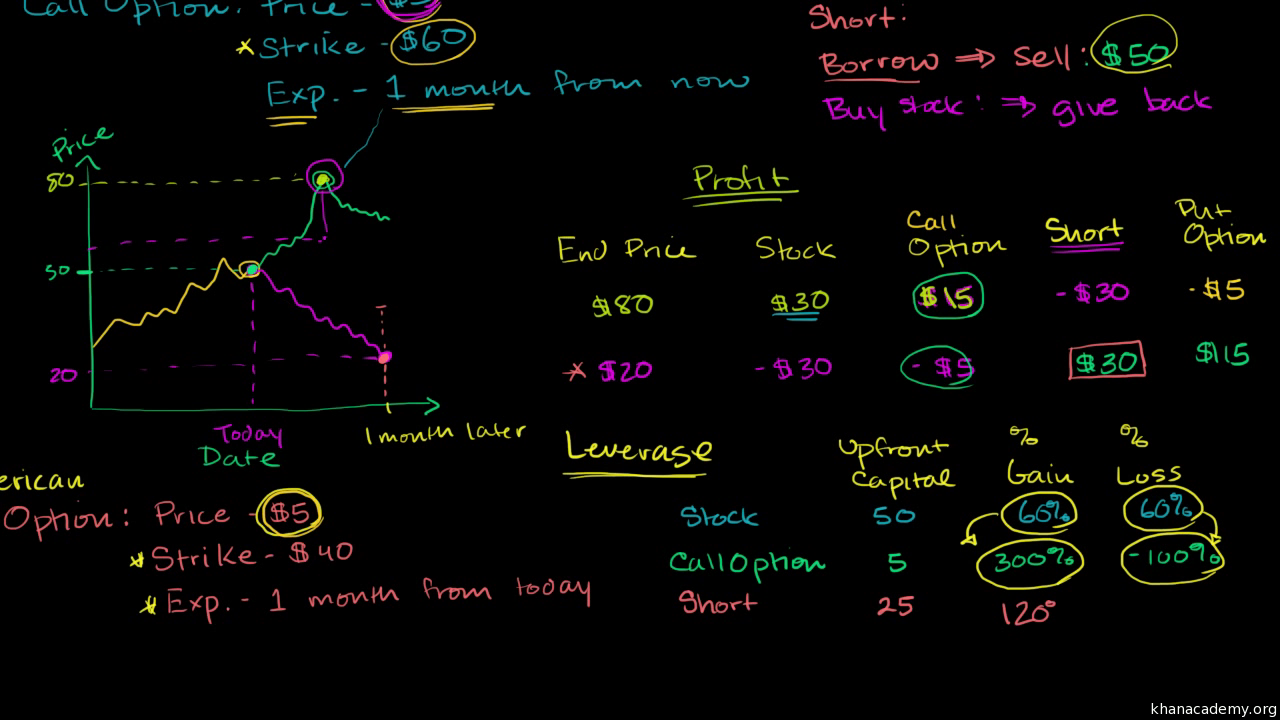 Call Option: Price - $5
* Strike - $60
Exp. - 1 month from now
Short:
Borrow ⇒ Sell: $50
Buy stock: ⇒ give back
Price
80
50
20
Today
1 month later
Date
Profit
End Price Stock Call Option Short Put Option
$80 $30 $15 - $30 - $5
* $20 - $30 - $5 $30 $15
erican
Option: Price - $5
* Strike - $40
* Exp. - 1 month from today
Leverage Upfront Capital % Gain % Loss
Stock 50 60% 60%
Call Option 5 300% -100%
Short 25 120°
khanacademy.org